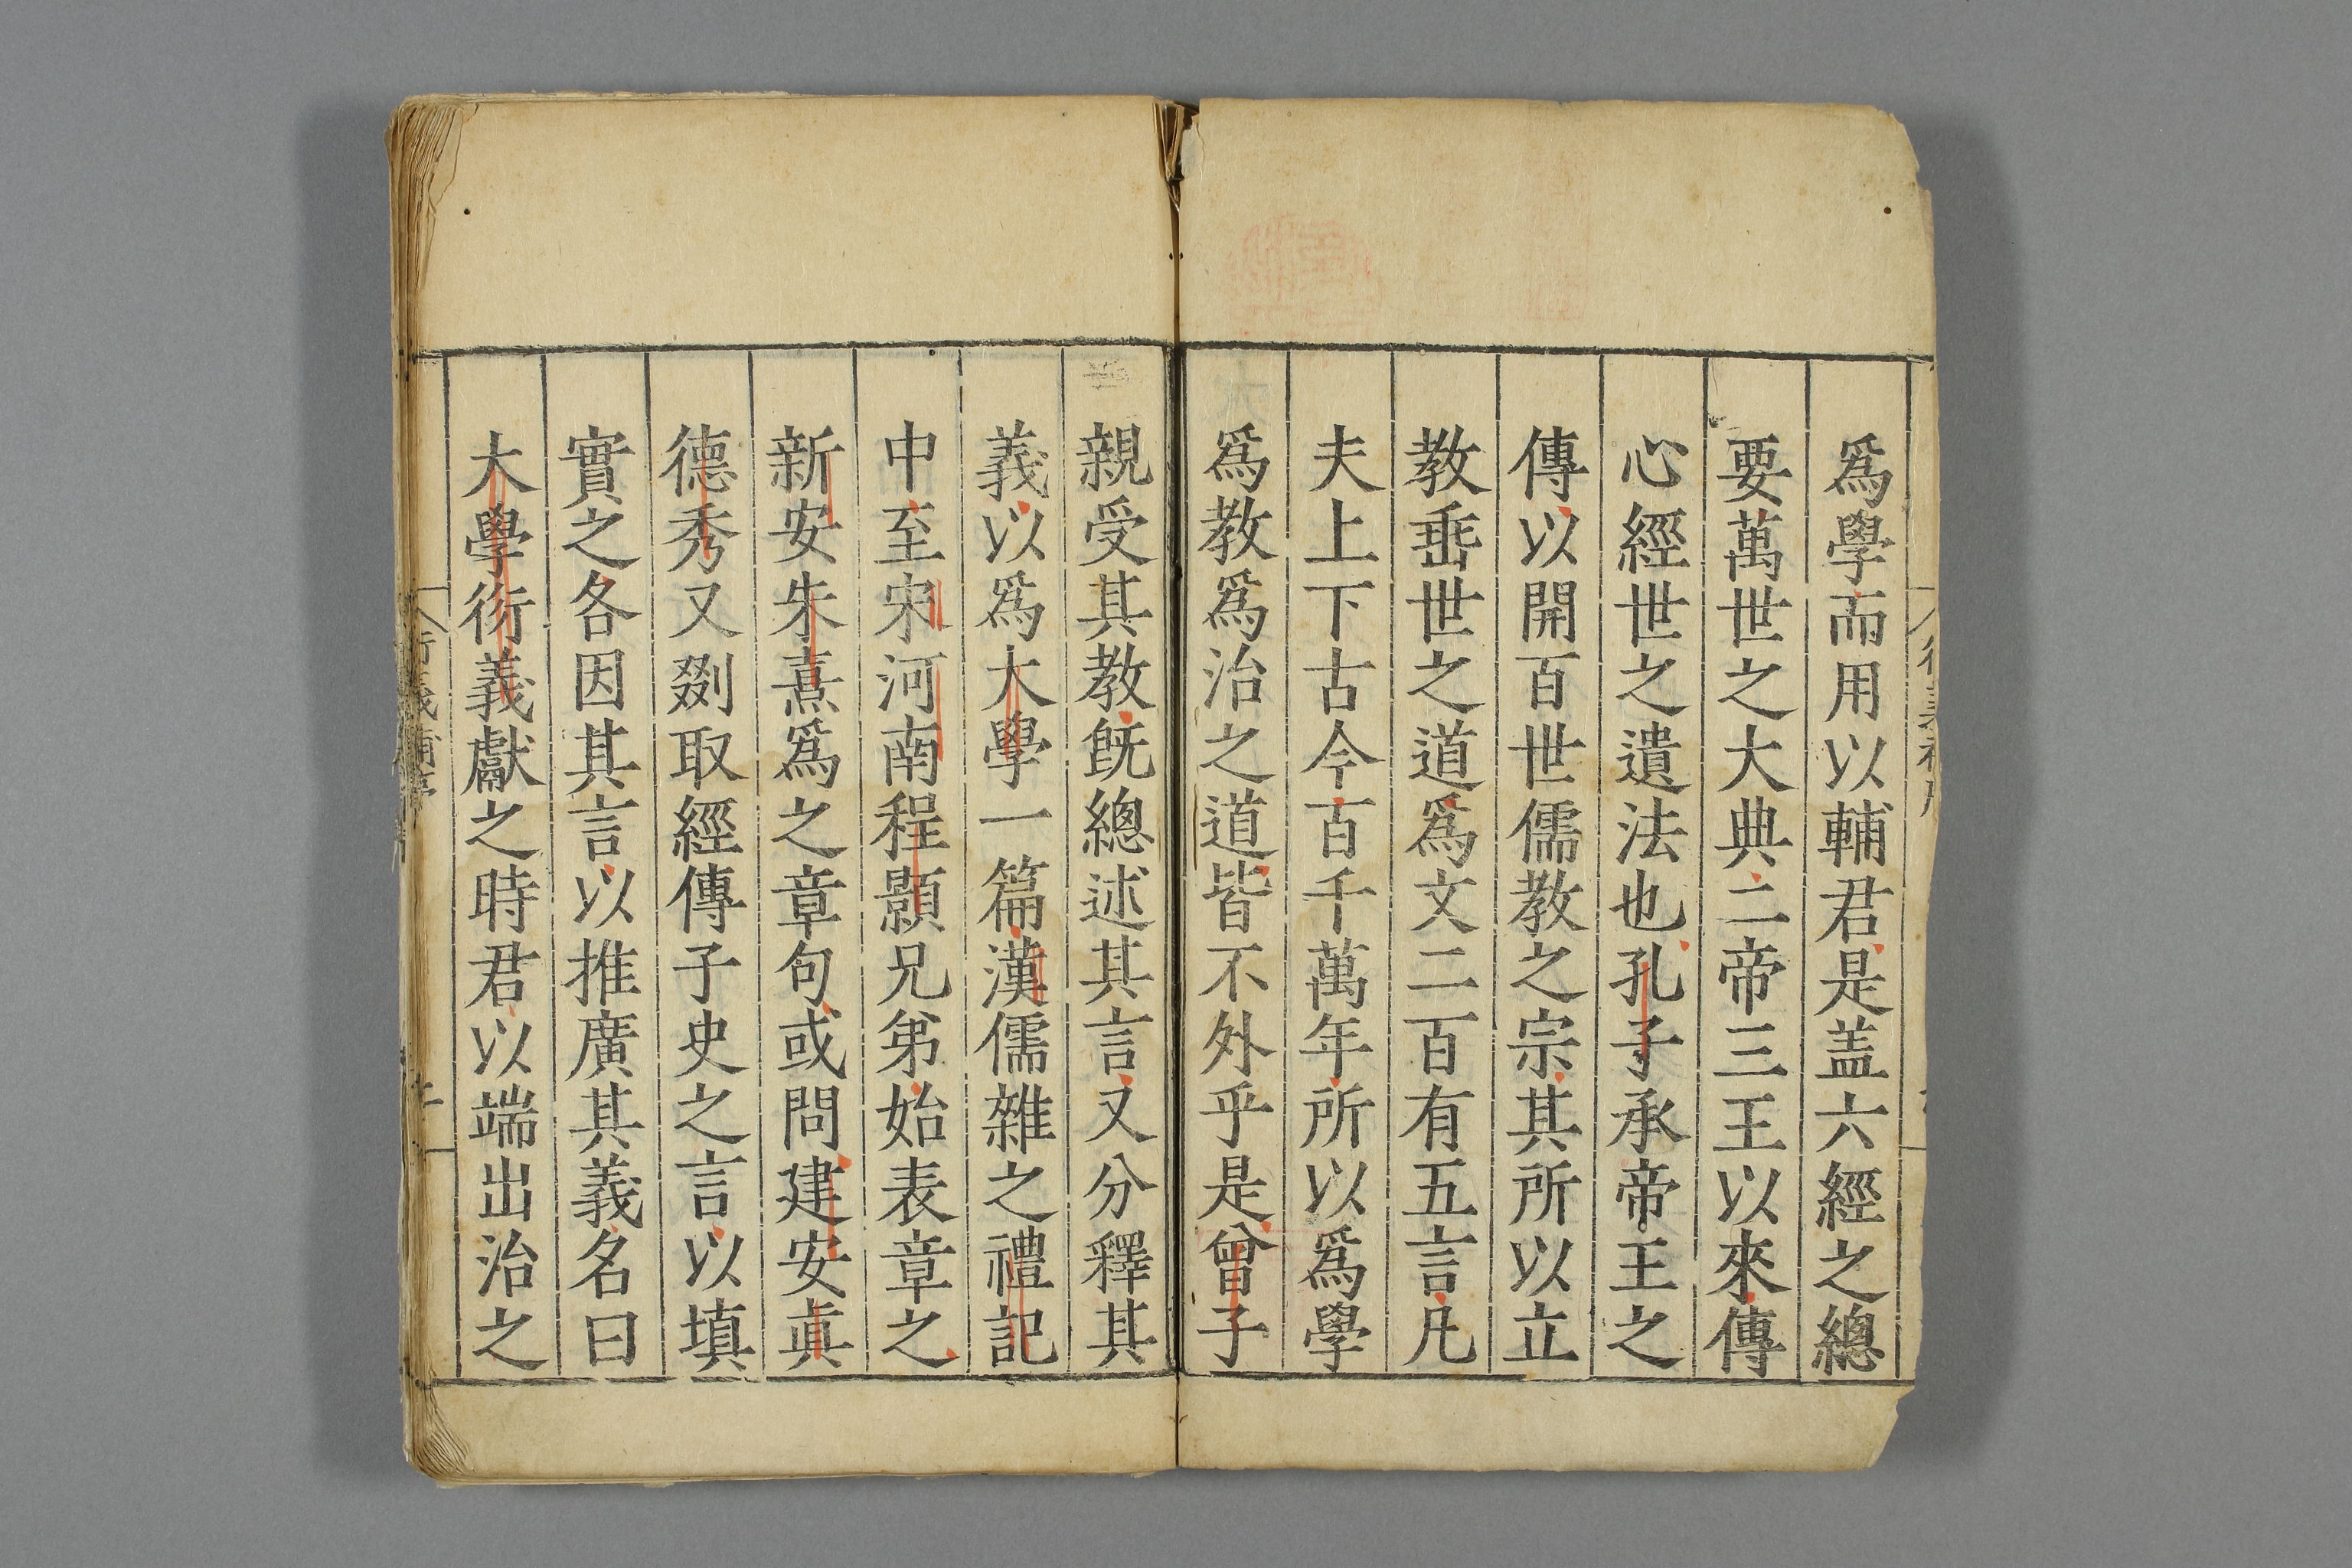 爲學而用以輔君是盖六經之總
要萬世之大典二帝三王以來傳
心經世之遺法也孔子承帝王之
傳以開百世儒教之宗其所以立
教垂世之道爲文二百有五言凡
夫上下古今百千萬年所以爲學
爲教爲治之道皆不外乎是曾子
親受其教旣總述其言又分釋其
義以爲大學一篇漢儒雜之禮記
中至宋河南程顥兄弟始表章之
新安朱熹爲之章句或問建安眞
德秀又剟取經傳子史之言以填
實之各因其言以推廣其義名曰
大學衍義獻之時君以端出治之